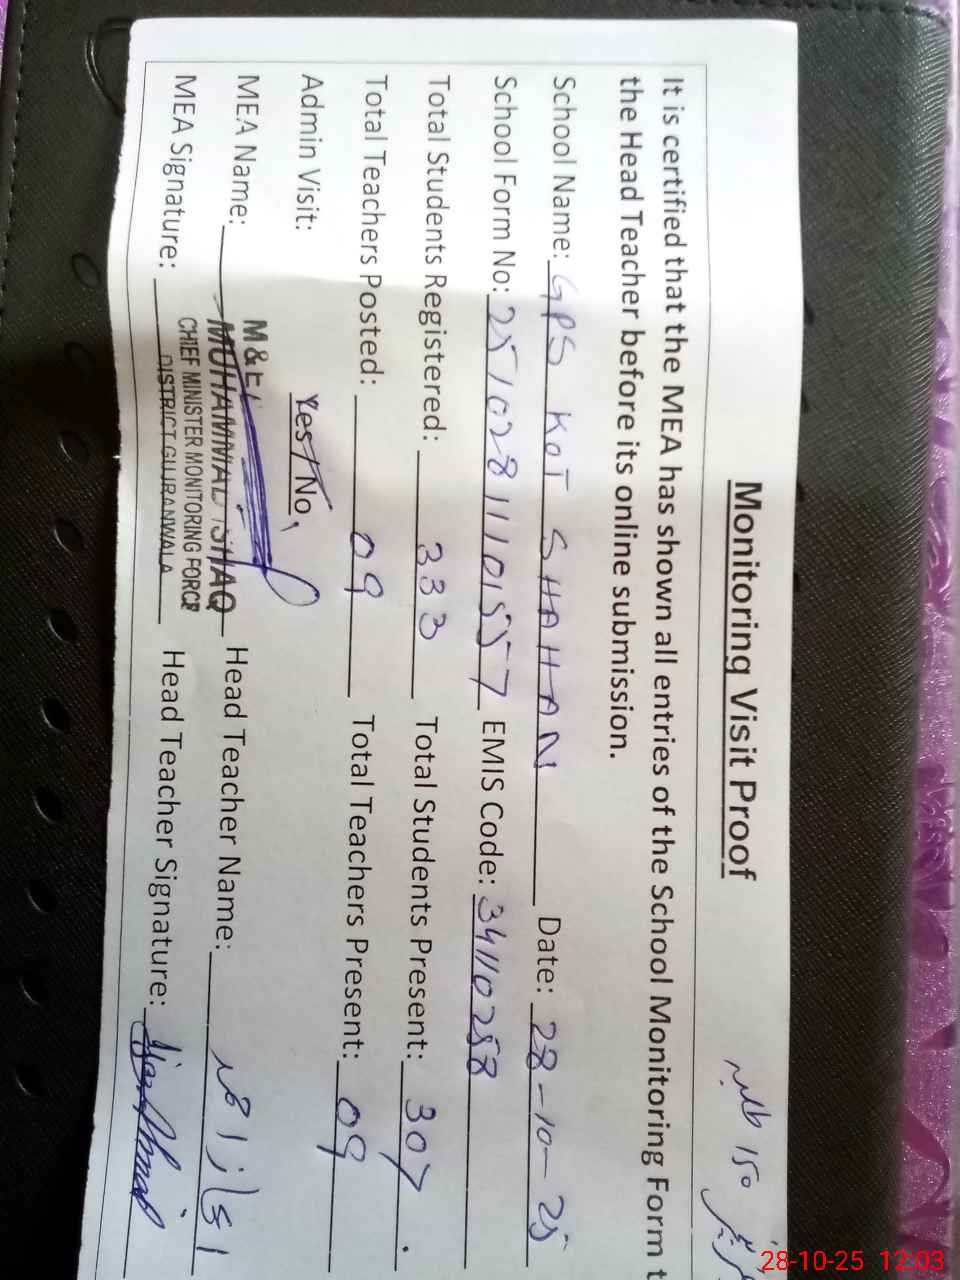 Monitoring Visit Proof
It is certified that the MEA has shown all entries of the School Monitoring Form t
the Head Teacher before its online submission.
School Name: GPS KOT SHAHAN Date: 28-10-25
School Form No: 2510281110157 EMIS Code: 34110258
Total Students Registered: 333 Total Students Present: 307
Total Teachers Posted: 09 Total Teachers Present: 09
Admin Visit: Yes/No
M&E
MEA Name: MUHAMMAD ISHAQ Head Teacher Name: اعجاز احمد
CHIEF MINISTER MONITORING FORCE
MEA Signature: DISTRICT GUJRANWALA Head Teacher Signature:
28-10-25 12:03